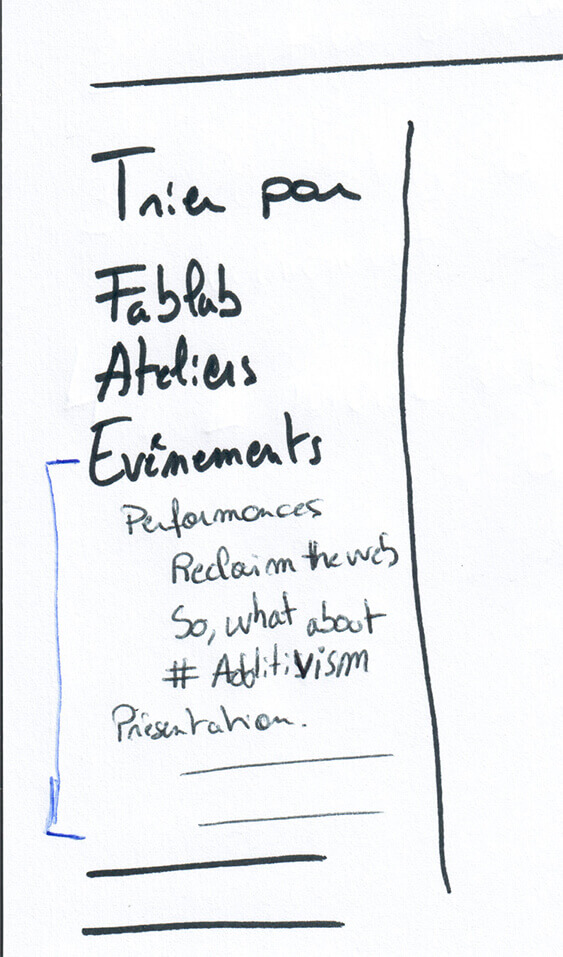 Trier par
Fablab
Ateliers
Evênements
Performances
Reclaim the web
So, what about
# Additivism
Présentation.